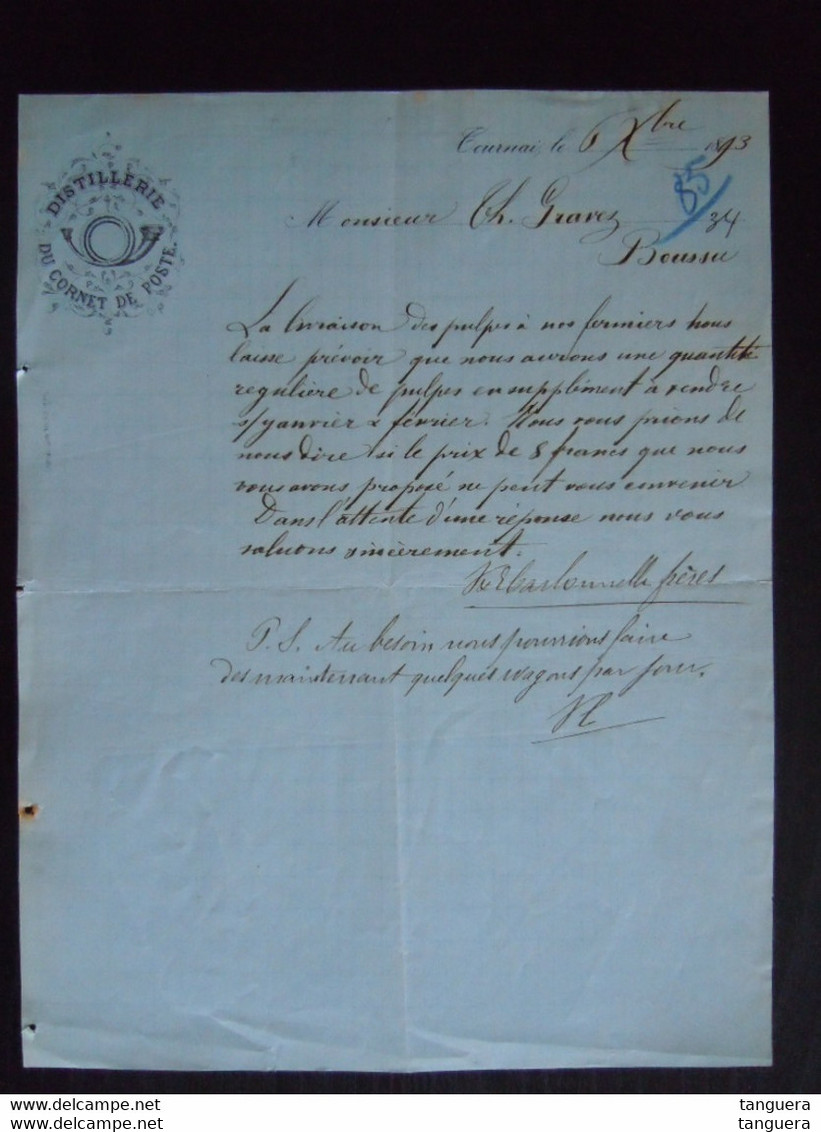 DISTILLERIE
DU CORNET DE POSTE.
Tournai, le 6 Xbre 1893
85
Monsieur Ch. Gravez 34
Boussu
La livraison des pulpes à nos fermiers nous
laisse prévoir que nous aurons une quantité
reguliere de pulpes en supplément à vendre
s/janvier & février. Nous vous prions de
nous dire si le prix de 8 francs que nous
vous avons proposé ne peut vous convenir
Dans l'attente d'une réponse nous vous
saluons sincèrement.
frères
P.S. Au besoin nous pourrions faire
des maintenant quelques wagons par jour.
tanguera
tanguera